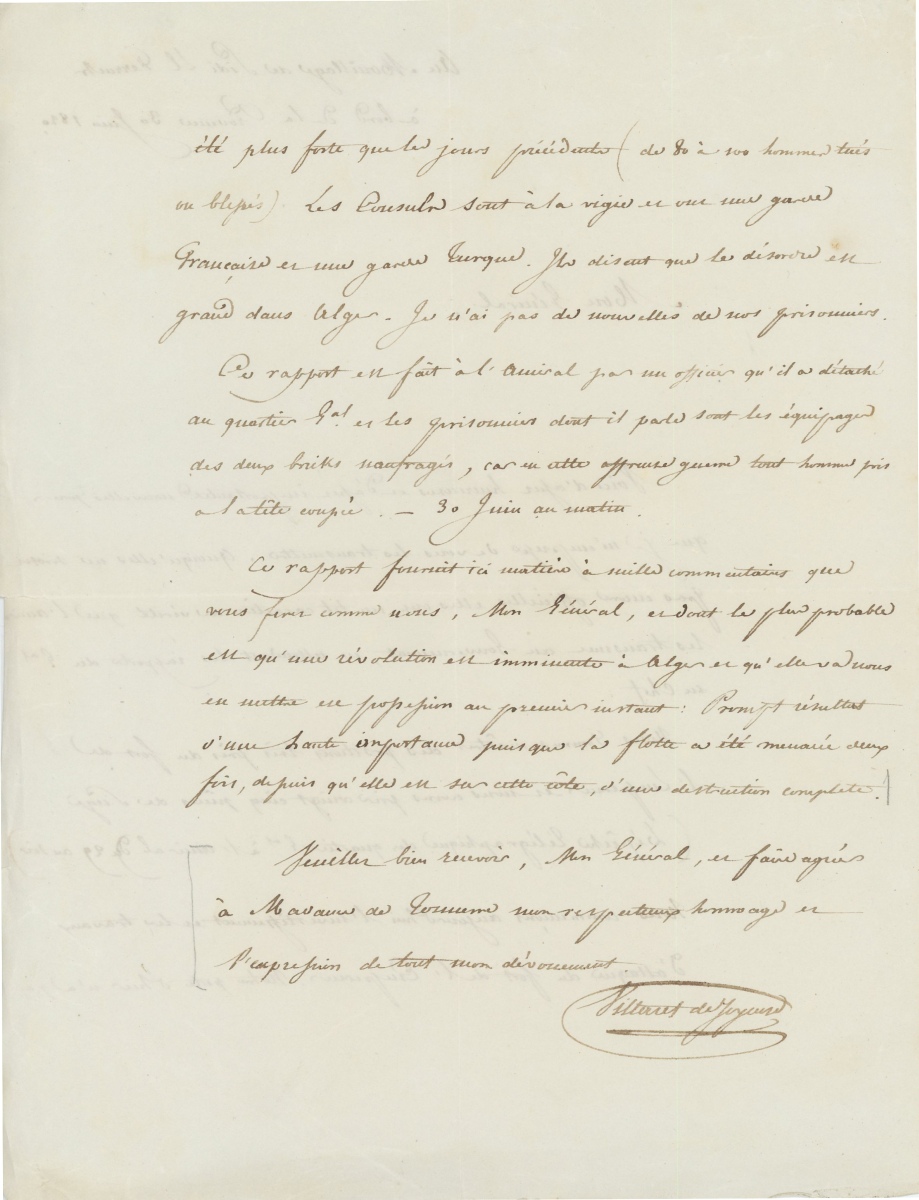 été plus forte que les jours précédents (de 80 à 100 hommes tués
ou blessés). Les Consuls sont à la vigie et ont une garde
Française et une garde Turque. Ils disent que le désordre est
grand dans Alger. Je n'ai pas de nouvelles de nos prisonniers.
Ce rapport est fait à l'Amiral par un officier qu'il a détaché
au quartier Gal et les prisonniers dont il parle sont les équipages
des deux bricks naufragés, car en cette affreuse guerre tout homme pris
a la tête coupée. — 30 Juin au matin.
Ce rapport fournit ici matière à mille commentaires que
vous ferez comme nous, Mon Général, et dont le plus probable
est qu'une révolution est imminente à Alger et qu'elle va nous
en mettre en possession au premier instant : Prompt résultat
d'une haute importance puisque la flotte a été menacée deux
fois, depuis qu'elle est sur cette côte, d'une destruction complète.
Veuillez bien recevoir, Mon Général, et faire agréer
à Madame de mon respectueux hommage et
l'expression de tout mon dévouement
Villaret de Joyeuse